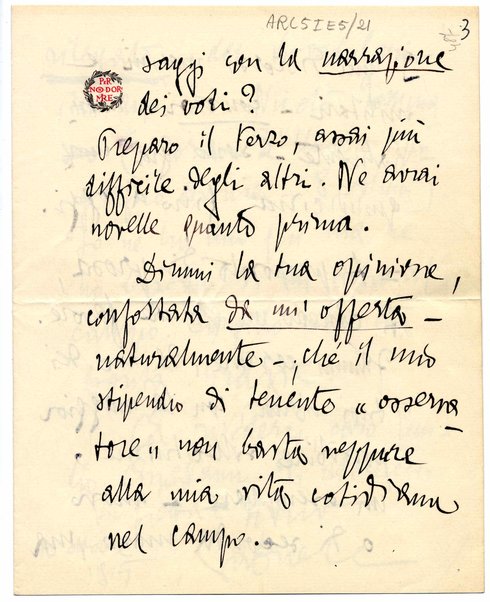 ARC5IE5/21
3
PER
NON DOR
MIRE
saggi con la narrazione
dei voti?
Preparo il terzo, assai più
difficile degli altri. Ne avrai
novelle quanto prima.
Dimmi la tua opinione,
confortata da un'offerta –
naturalmente –, che il mio
stipendio di tenente "osserva
tore" non basta neppure
alla mia vita cotidiana
nel campo.